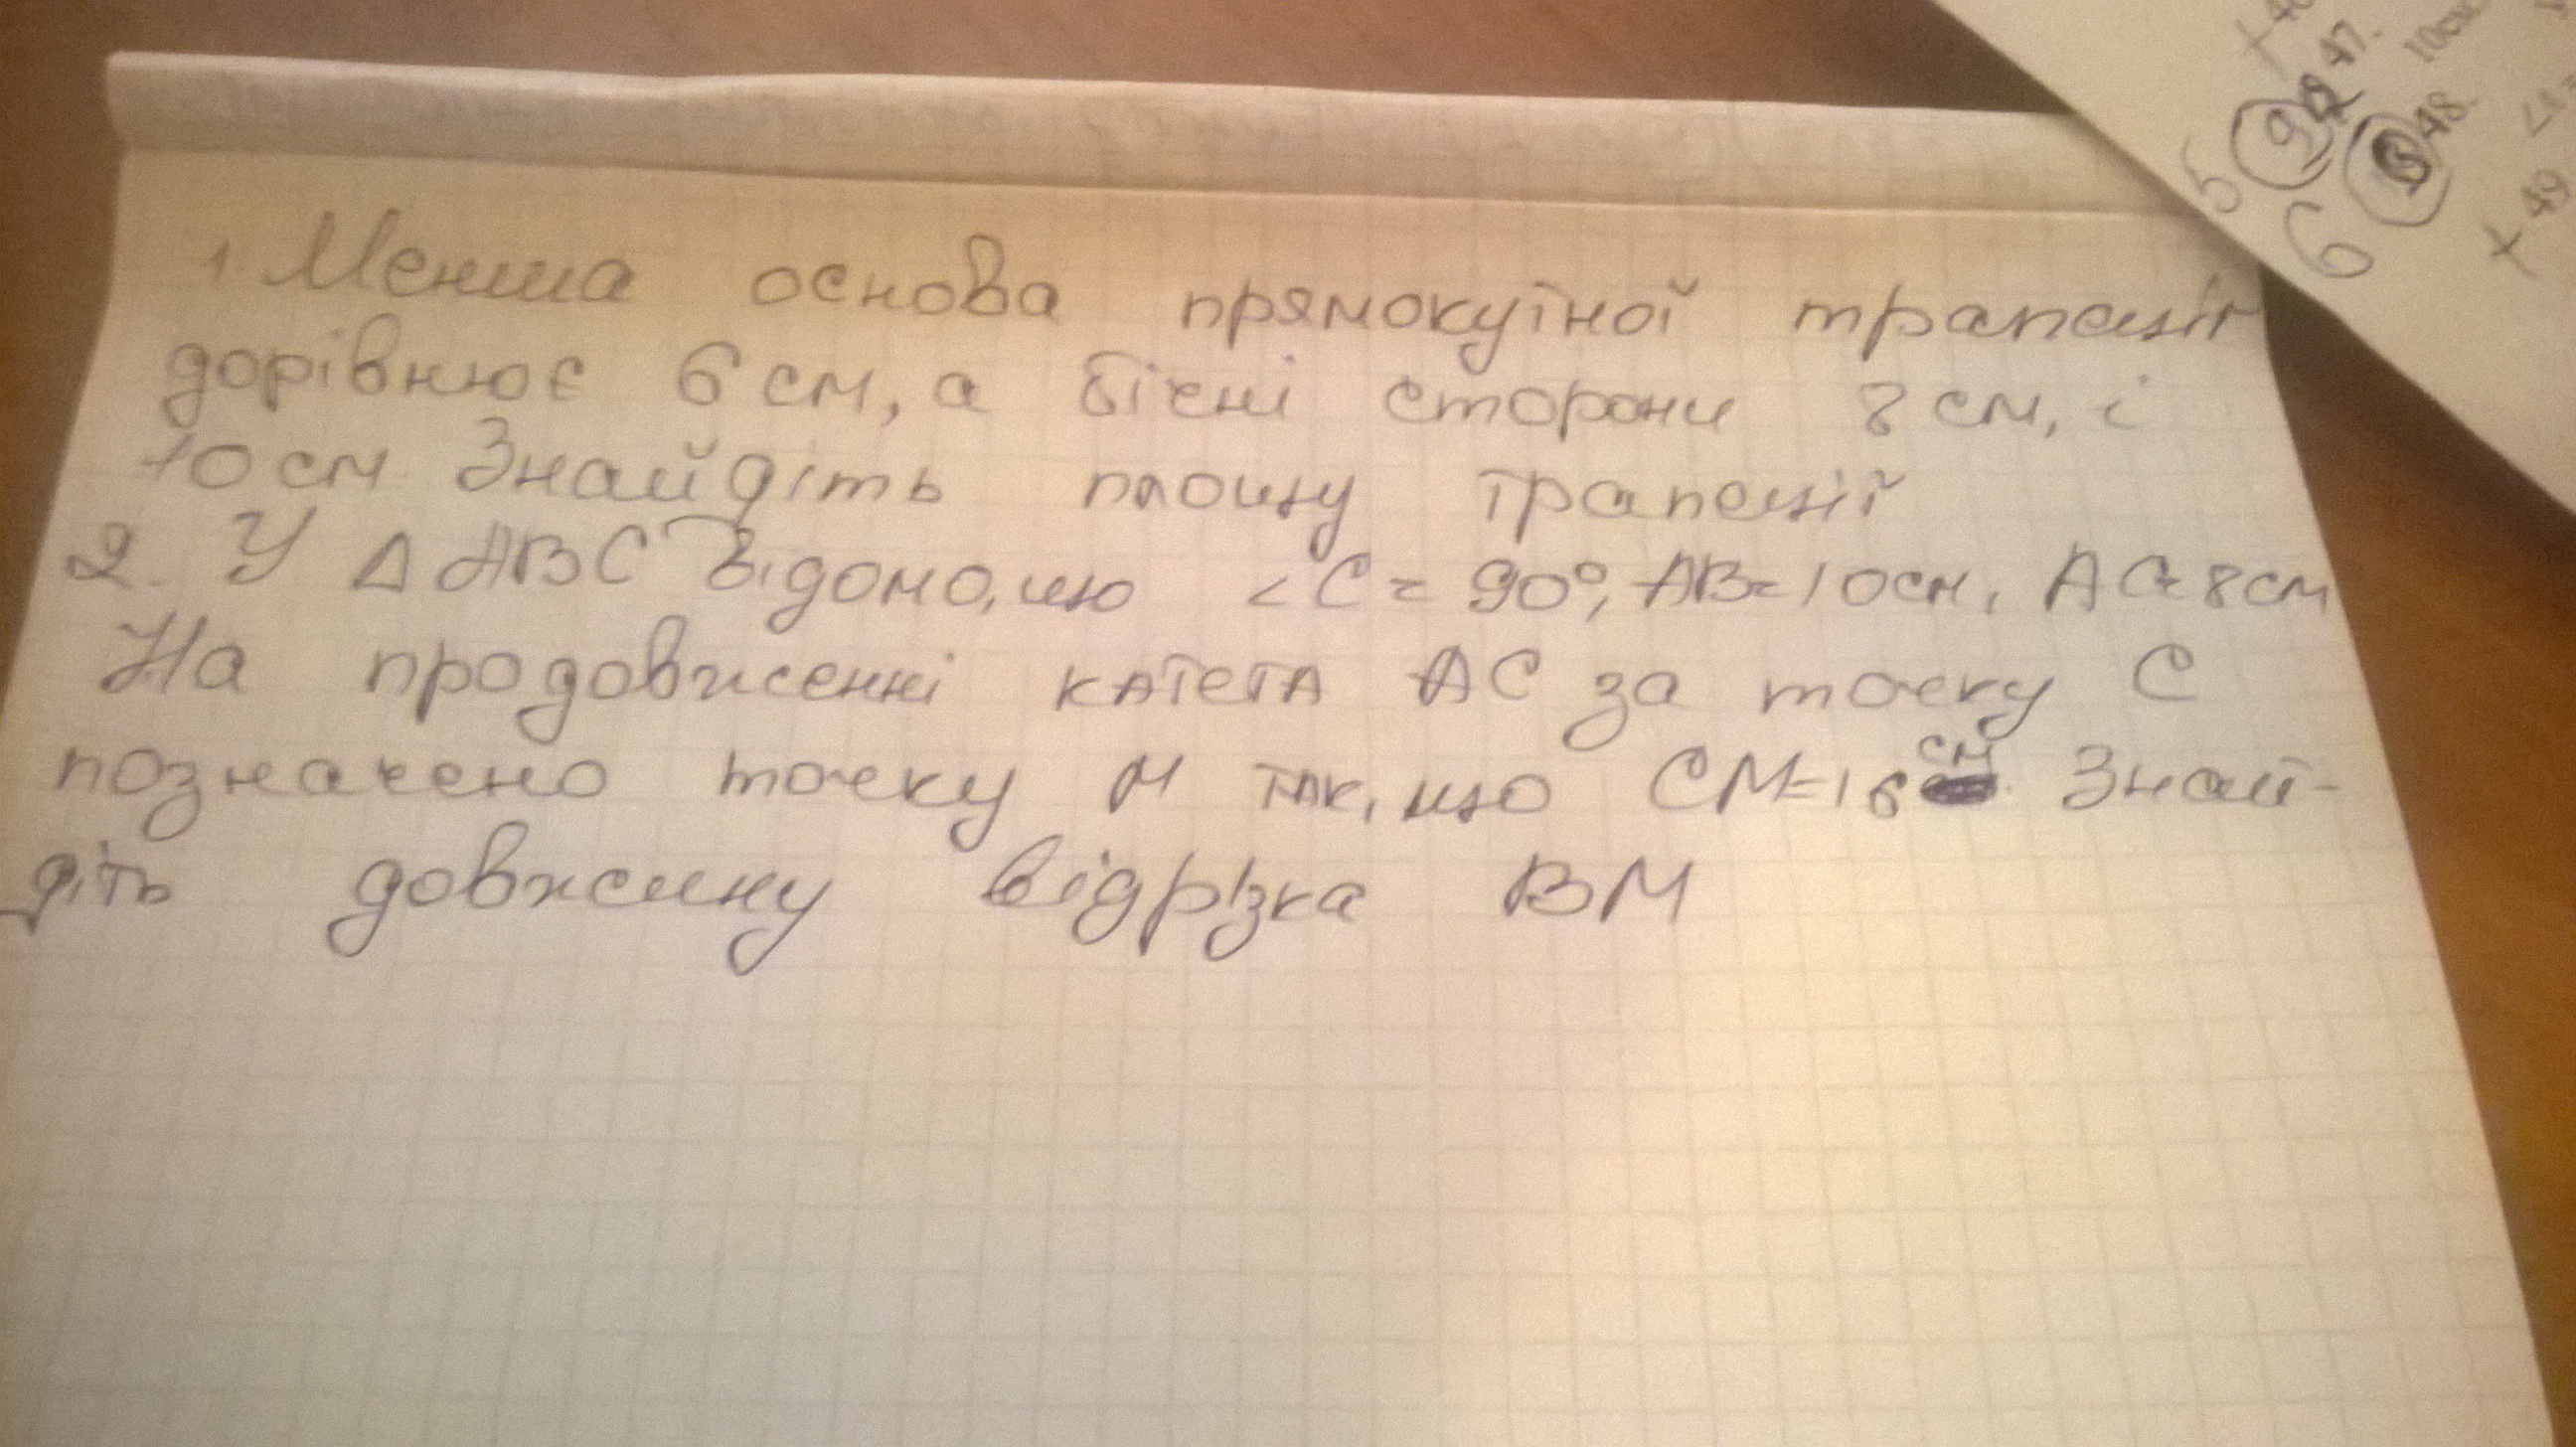 1. Менша основа прямокутної трапеції
дорівнює 6 см, а бічні сторони 8 см, і
10 см Знайдіть площу трапеції
2. У Δ ABC відомо, що <C = 90°, AB=10см, AC=8см
На продовженні катета AC за точку C
позначено точку M так, що CM=16 см Знай-
діть довжину відрізка BM
+ 46
47.
92
5
10см
48.
6
+ 49